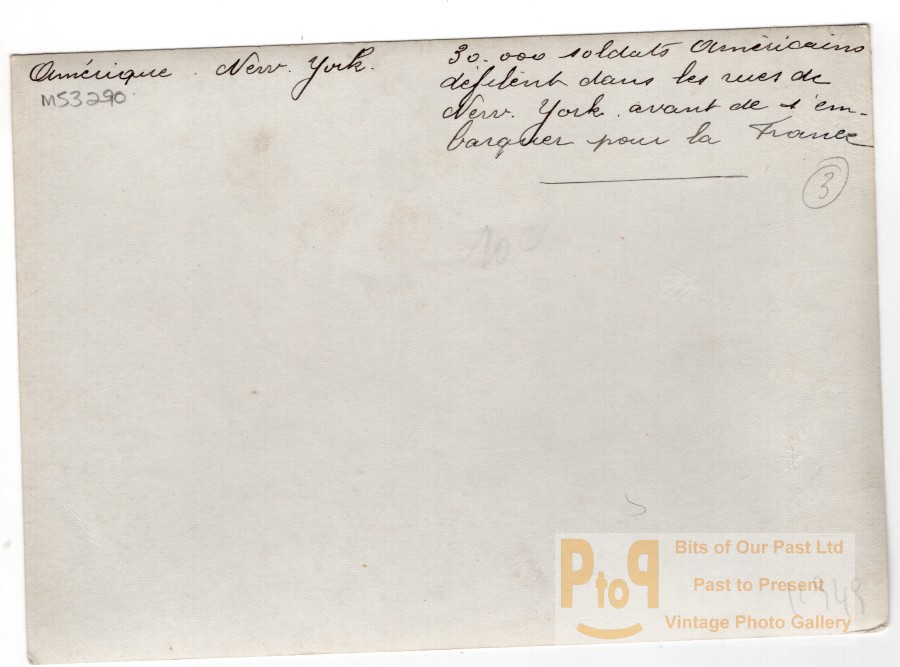 Amérique. New. York.
MS3290
30.000 soldats Américains
défilent dans les rues de
New. York avant de s'em-
barquer pour la France
3
10c
PtoP
Bits of Our Past Ltd
Past to Present
Vintage Photo Gallery